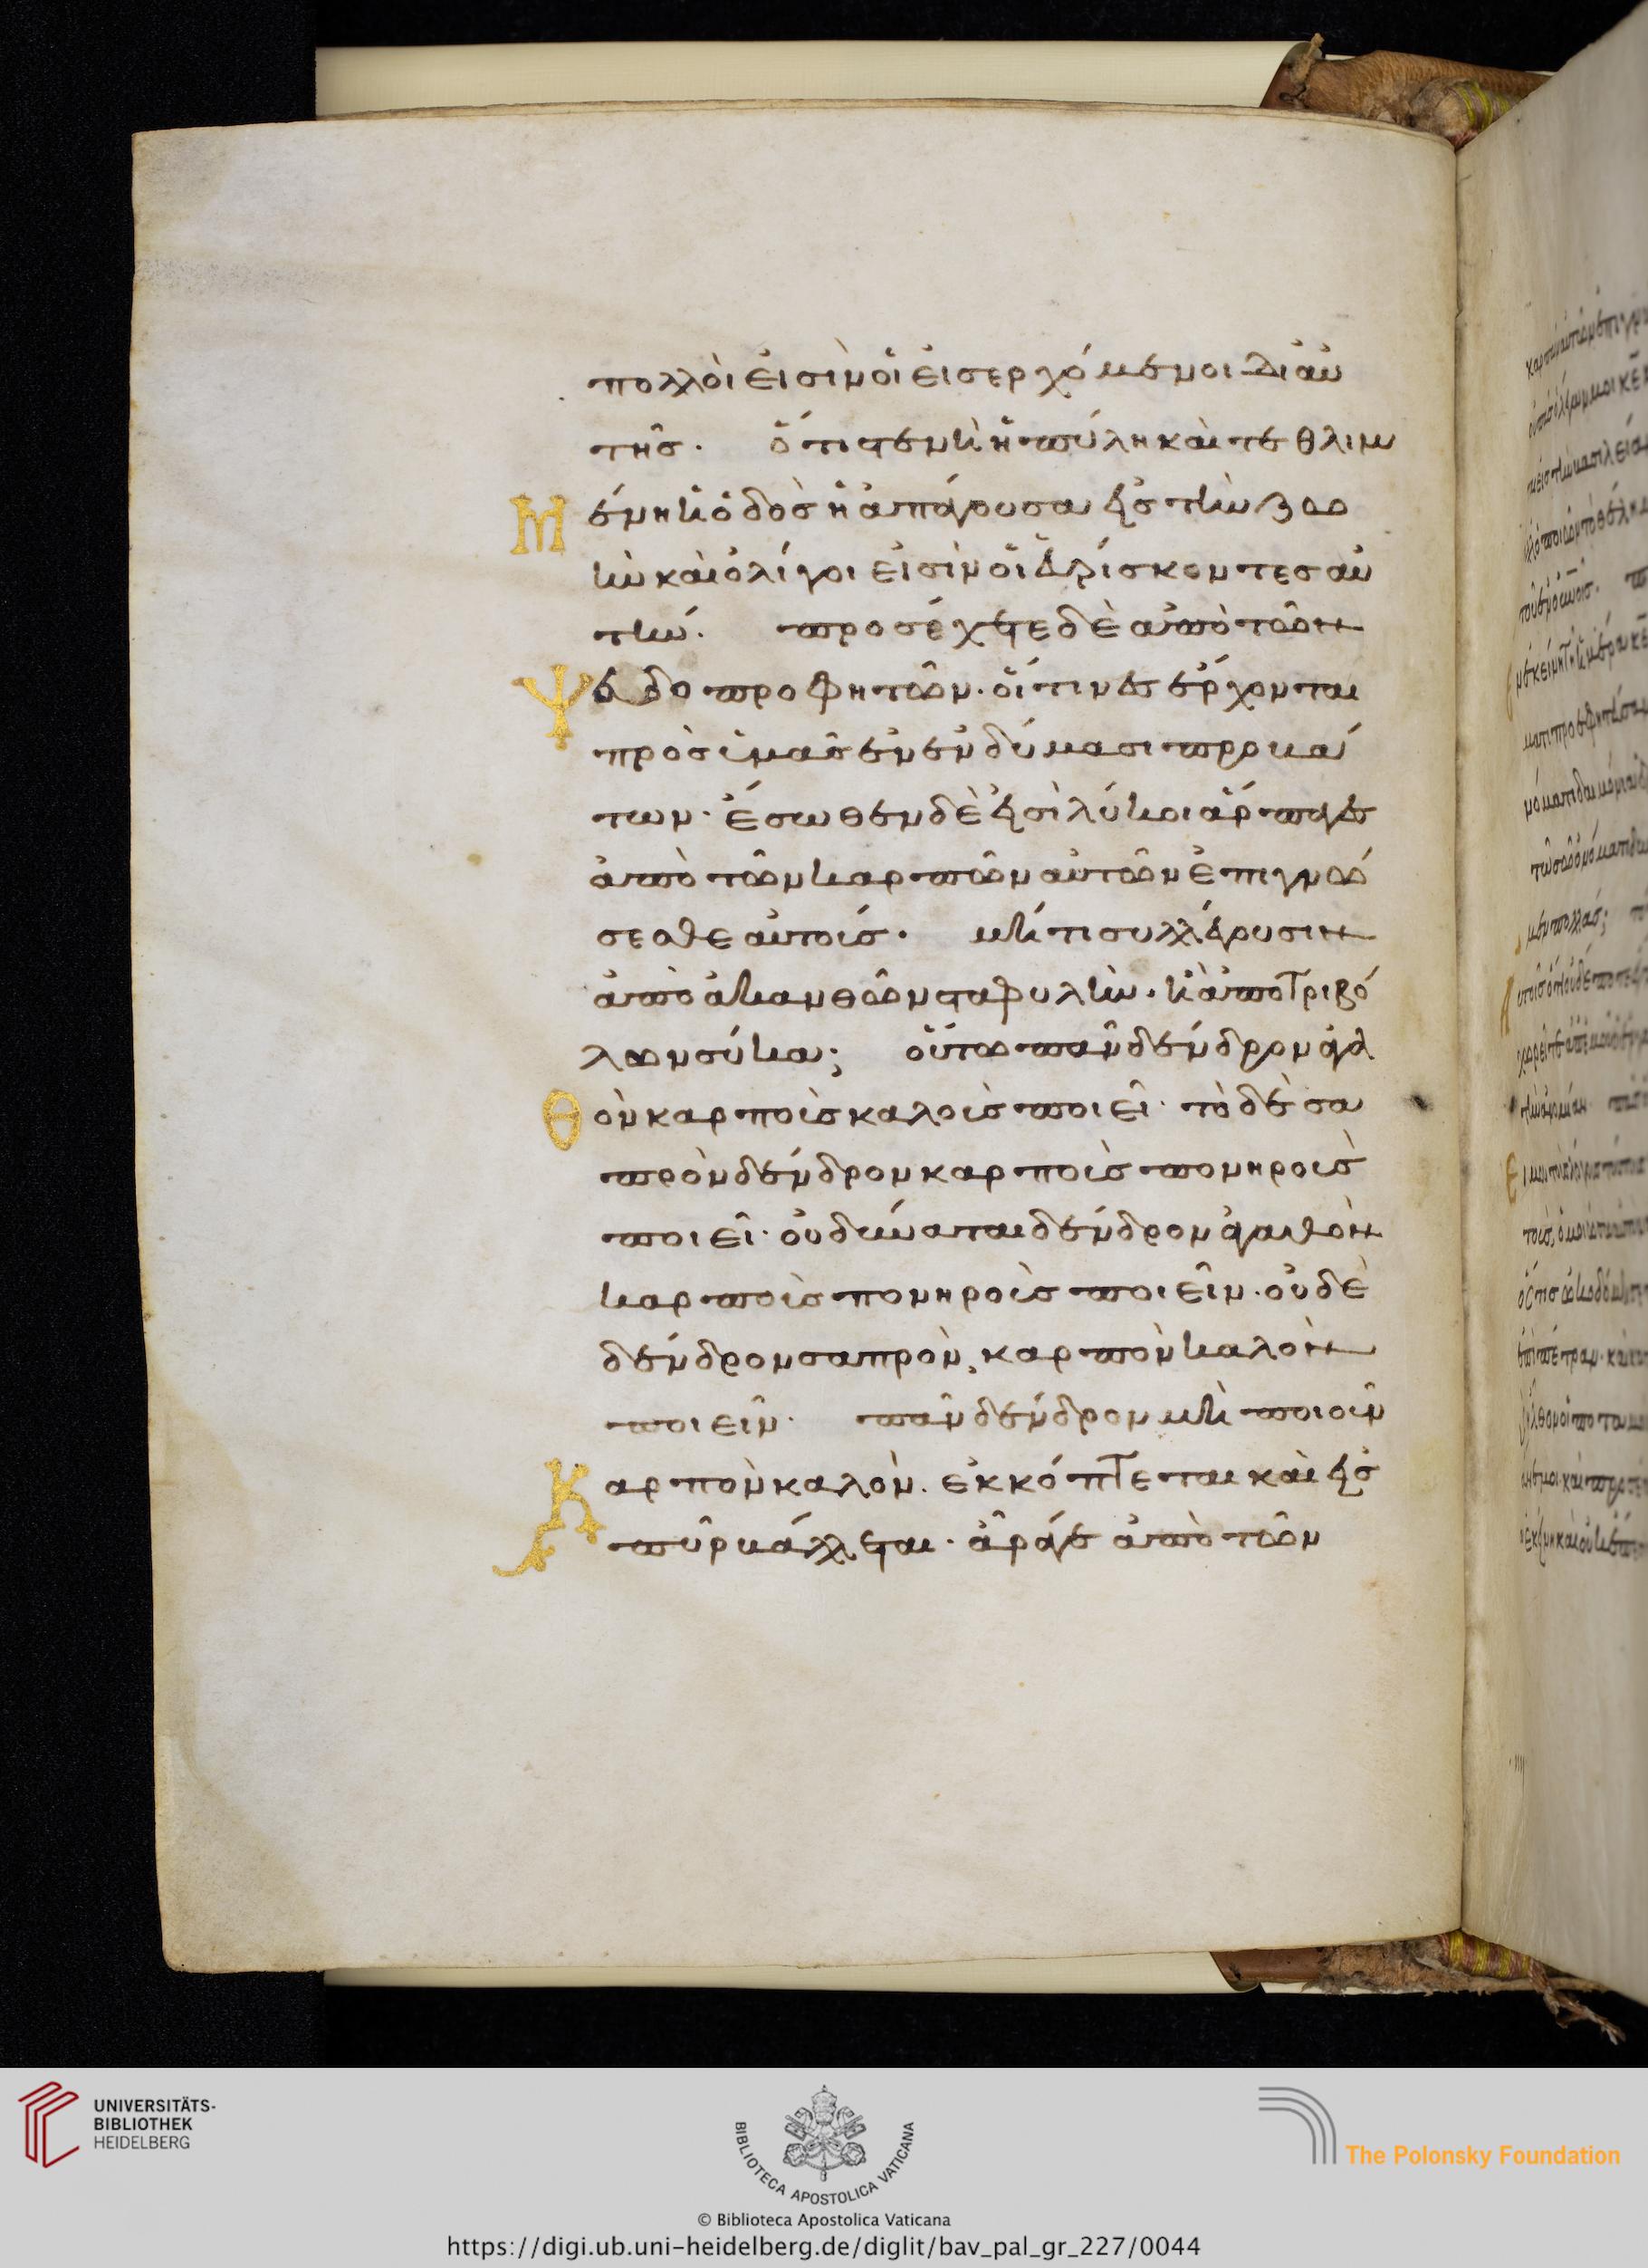 πολλοὶ εἰσὶν οἱ εἰσερχόμενοι δι αὐ
τῆς. ὅτι στενὴ ἡ πύλη καὶ τεθλιμ
Μένη ἡ ὁδὸς ἡ ἀπάγουσα εἰς τὴν ζω
ὴν καὶ ὀλίγοι εἰσὶν οἱ εὑρίσκοντες αὐ
τήν. προσέχετε δὲ ἀπὸ τῶν
Ψευδοπροφητῶν. οἵτινες ἔρχονται
πρὸς ὑμᾶς ἐν ἐνδύμασι προβά
των. ἔσωθεν δὲ εἰσὶ λύκοι ἅρπαγες
ἀπὸ τῶν καρπῶν αὐτῶν ἐπιγνώ
σεσθε αὐτούς. μήτι συλλέγουσιν
ἀπὸ ἀκανθῶν σταφυλήν. ἢ ἀπὸ τριβό
λων σύκα; οὕτω πᾶν δένδρον ἀγα
Θὸν καρποὺς καλοὺς ποιεῖ. τὸ δὲ σα
πρὸν δένδρον καρποὺς πονηροὺς
ποιεῖ. οὐ δύναται δένδρον ἀγαθὸν
καρποὺς πονηροὺς ποιεῖν. οὐδὲ
δένδρον σαπρὸν, καρπὸν καλὸν
ποιεῖν. πᾶν δένδρον μὴ ποιοῦν
Καρπὸν καλὸν. ἐκκόπτεται καὶ εἰς
πῦρ βάλλεται. ἆρά γε ἀπὸ τῶν
UNIVERSITÄTS-
BIBLIOTHEK
HEIDELBERG
BIBLIOTECA APOSTOLICA VATICANA
The Polonsky Foundation
© Biblioteca Apostolica Vaticana
https://digi.ub.uni-heidelberg.de/diglit/bav_pal_gr_227/0044